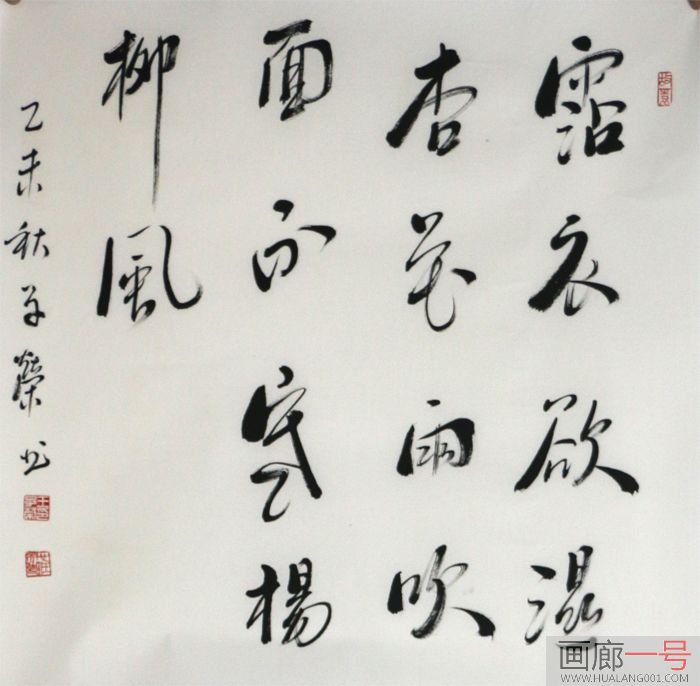 霑衣欲湿
杏花雨吹
面不寒楊
柳風
乙未秋子榮书
画廊一号
WWW.HUALANG001.COM